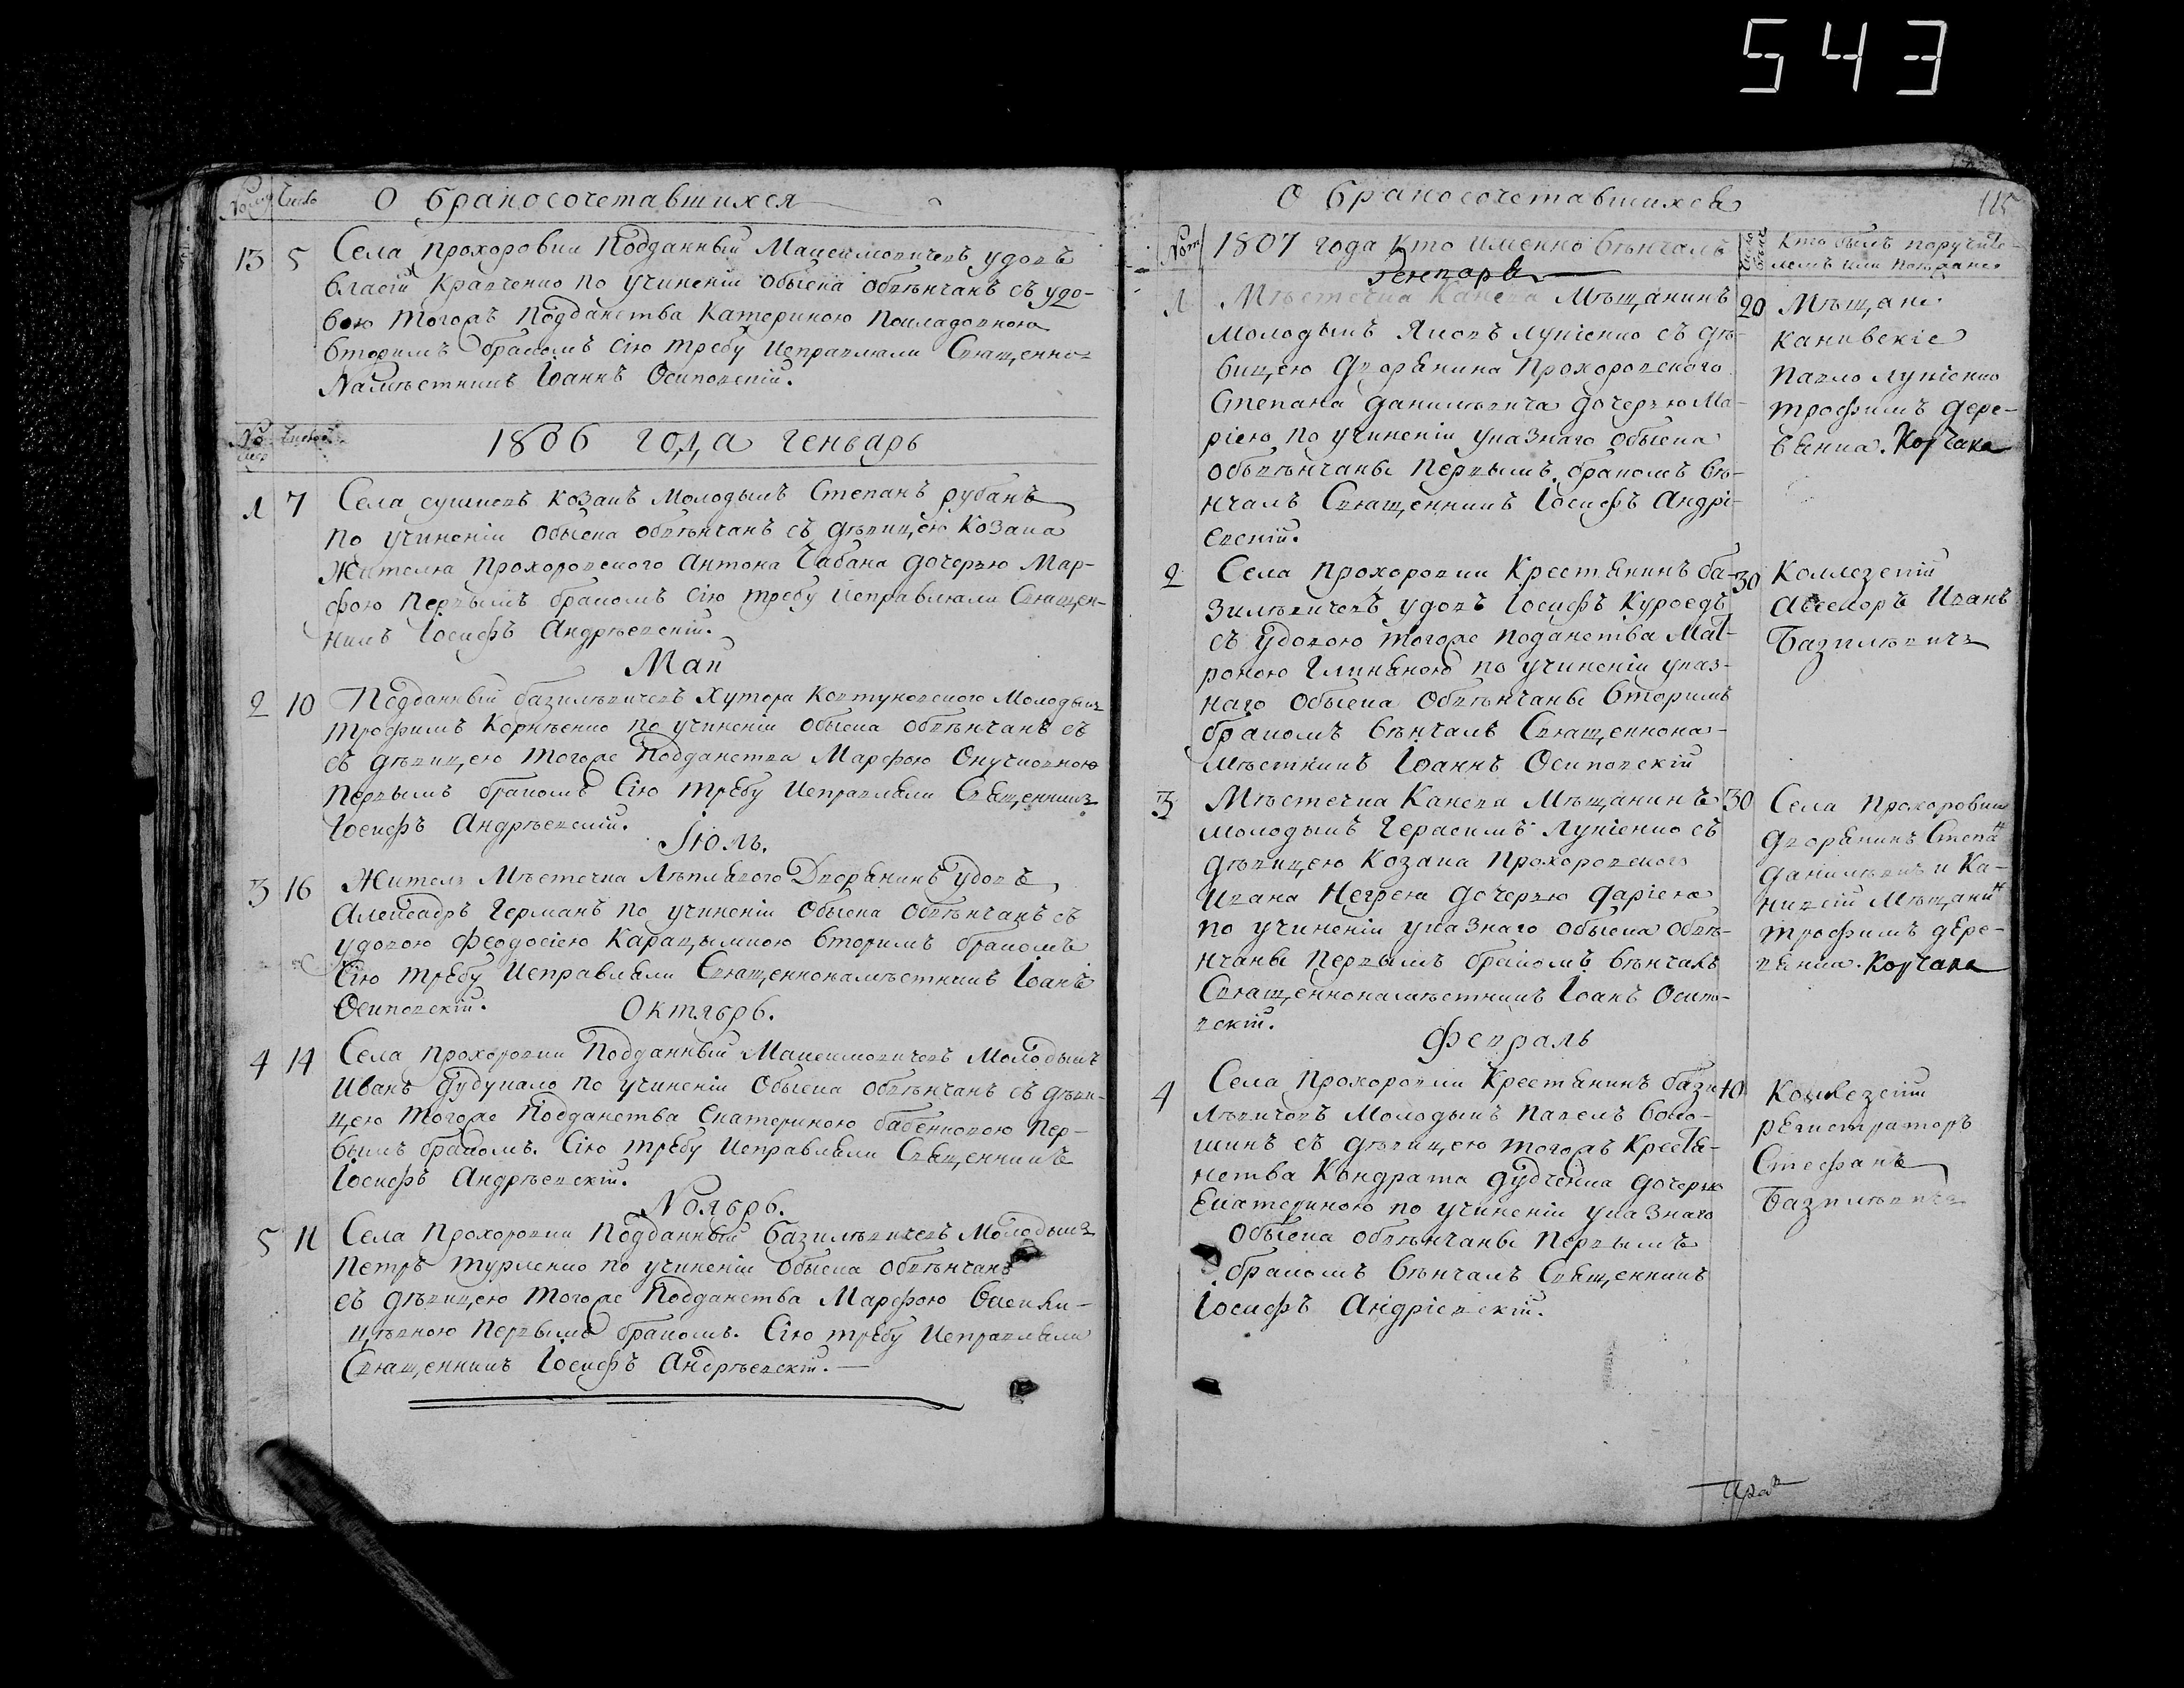 543
О бракосочетавшихся
Число
13 5 Села Прохоровки Подданный Максимовичевъ удовъ
Власій Кравченко по учиненіи обыска обвѣнчанъ съ удо-
вою тогожъ подданства Катериною
вторимъ бракомъ сію требу исправляли Священно-
Намѣстникъ Іоаннъ Осиповскій.
No Число
1806 года генварь
1 7 Села сушковъ козакъ молодымъ Степанъ рубанъ
по учиненіи обыска обвѣнчанъ съ дѣвицею козака
Жителя прохоровского Антона Чабана дочерью Мар-
фою первымъ бракомъ сію требу исправляли Священ-
никъ Іосифъ Андрѣевскій.
Маи
2 10 Подданный базилѣвичевъ хутора Ковтуновского Молодымъ
трофимъ Корнѣенко по учиненіи обыска обвѣнчанъ съ
съ дѣвицею тогоже Подданства Марфою Онучковною
первымъ бракомъ Сію требу исправляли Священникъ
Іосифъ Андрѣевскій.
Іюль.
3 16 Житель Мѣстечка Лѣплявого Дворянинъ удовъ
Алексадръ Германъ по учиненіи обыска обвѣнчанъ съ
удовою феодосіею вторимъ бракомъ
Сію требу исправляли Священнонамѣстникъ Іоанъ
Осиповскій.
Октябрь.
4 14 Села прохоровки Подданный Максимовичевъ Молодымъ
Иванъ дудукало по учиненіи обыска обвѣнчанъ съ дѣви-
цею тогоже Подданства Екатериною бабенковою пер-
вымъ бракомъ. Сію требу исправляли Священникъ
Іосифъ Андрѣевскій.
Ноябрь.
5 11 Села Прохоровки Подданный базилѣвичевъ Молодымъ
Петръ турленко по учиненіи обыска обвѣнчанъ
съ дѣвицею тогоже Подданства Марфою
первымъ бракомъ. Сію требу исправляли
Священникъ Іосифъ Андрѣевскій.
О бракосочетавшихся
115
1807 года Кто именно вѣнчалъ
Кто былъ поручите-
лемъ или
Генваръ
1 Мѣстечка Канева Мѣщанинъ 20
молодымъ Яковъ лукіенко съ дѣ-
вицею дворянина прохоровского
Степана данилѣвича дочерью Ма-
ріею по учиненіи указнаго обыска
обвѣнчаны первымъ бракомъ вѣ-
нчалъ Священникъ Іосифъ Андрі-
евскій.
Мѣщане
каневскіе
павло лукіенко
трофимъ дере-
вянка. Корчака
2 Села прохоровки Крестянинъ ба- 30
зилѣвичевъ удовъ Іосифъ Куроедъ
съ удовою тогоже поданства Мат-
роною Глиняною по учиненіи указ-
наго обыска обвѣнчаны вторимъ
бракомъ вѣнчалъ Священнона-
мѣстникъ Іоаннъ Осиповскій
Коллезскій
Асесоръ Иванъ
Базилѣвичъ
3 Мѣстечка Канева Мѣщанинъ 30
молодымъ Герасимъ лукіенко съ
дѣвицею козака прохоровского
Ивана Негрея дочерью даріею
по учиненіи указнаго обыска обвѣ-
нчаны первымъ бракомъ вѣнчалъ
Священнонамѣстникъ Іоанъ Осипо-
вскій.
Села прохоровки
дворянинъ Степан
данилѣвичъ и Ка-
нивскій Мѣщанин
трофимъ дере-
вянка. Корчака
Февраль
4 Села прохоровки Крестянинъ бази- 10
лѣвичевъ молодымъ павелъ воло-
шинъ съ дѣвицею тогожъ Крестя-
нства Кондрата дудченка дочерью
Екатериною по учиненіи указнаго
обыска обвѣнчаны первымъ
бракомъ вѣнчалъ Священникъ
Іосифъ Андріевскій.
Коллезскій
регистраторъ
Стефанъ
Базилѣвичъ